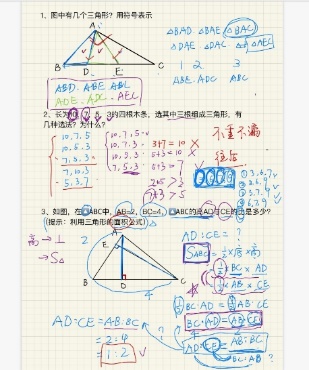 1、图中有几个三角形？用符号表示
△BAD △BAE △BAC
△DAE △DAC △AEC
1 2 3
ABE ADC ABC
A
B D E C
ABD. ABE. ABC
ADE. ADC. AEC
2、长为10,7,5,3的四根木条，选其中三根组成三角形，有
几种选法？为什么？
不重不漏
10,7,5
10,7,3
10,5,3
7,5,3
10,7,5 ✓
10,7,3
10,5,3
7,5,3 ✓
3+7=10 ✗
5+3<10 ✗
7,10,3
5,3,7
3、如图，在△ABC中，AB=2，BC=4，△ABC的高AD与CE的比是多少？
（提示：利用三角形的面积公式）
高→⊥
→S△
A
2
E
B D C
4
AD:CE=?
S△ABC=½×底×高
=½×BC×AD
=½×AB×CE
½BC·AD=½AB·CE
BC·AD=AB·CE
AD:CE=AB:BC
=2:4
=1:2 ✓
AD:CE=AB:BC
BC:AB?